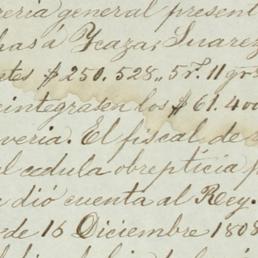 reria general present
has á Yeazar Suarez
etes $250.528,, 5 r. 11 grs
eintegrasen los $61.400
veria. El fiscal de
l cedula obrepticia p
dió cuenta al Rey.
de 16 Diciembre 1808